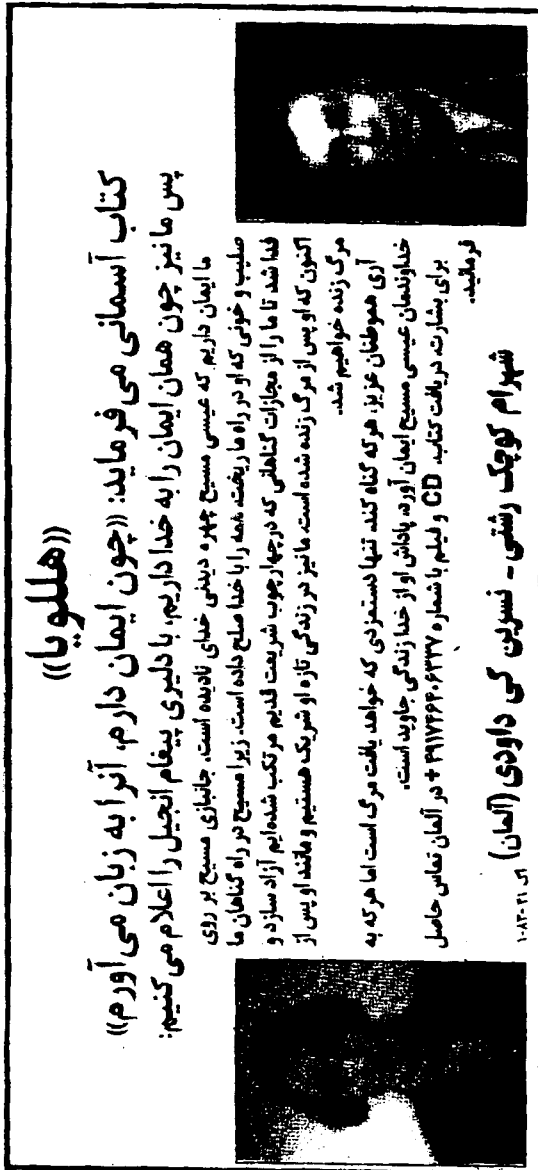 «هللویا»
کتاب آسمانی می فرماید: «چون ایمان دارم، آنرا به زبان می آورم»
پس ما نیز چون همان ایمان را به خدا داریم، با دلیری پیغام انجیل را اعلام می کنیم:
ما ایمان داریم که عیسی مسیح چهره دیدنی خدای نادیده است. جانبازی مسیح بر روی
صلیب و خونی که او در راه ما ریخت، همه را با خدا صلح داده است. زیرا مسیح در راه گناهان ما
فدا شد تا ما را از مجازات گناهانی که در چهارچوب شریعت قدیم مرتکب شده ایم آزاد سازد و
اکنون که او پس از مرگ زنده شده است. ما نیز در زندگی تازه او شریک هستیم و مانند او پس از
مرگ زنده خواهیم شد.
آری هموطنان عزیز، هر که گناه کند تنها دستمزدی که خواهد یافت مرگ است اما هر که به
خداوندمان عیسی مسیح ایمان آورد، پاداش او از خدا زندگی جاوید است.
برای بشارت، دریافت کتاب، CD و فیلم با شماره در آلمان تماس حاصل
فرمائید.
شهرام کوچک رشتی - نسرین کی داودی (آلمان)